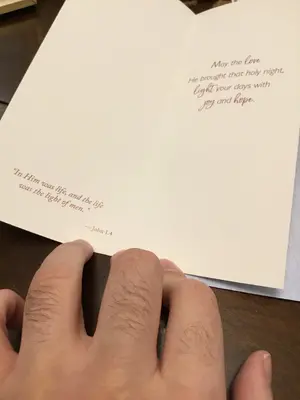 May the love
He brought that holy night,
light your days with
joy and hope.
"In Him was life, and the life
was the light of men."
— John 1:4